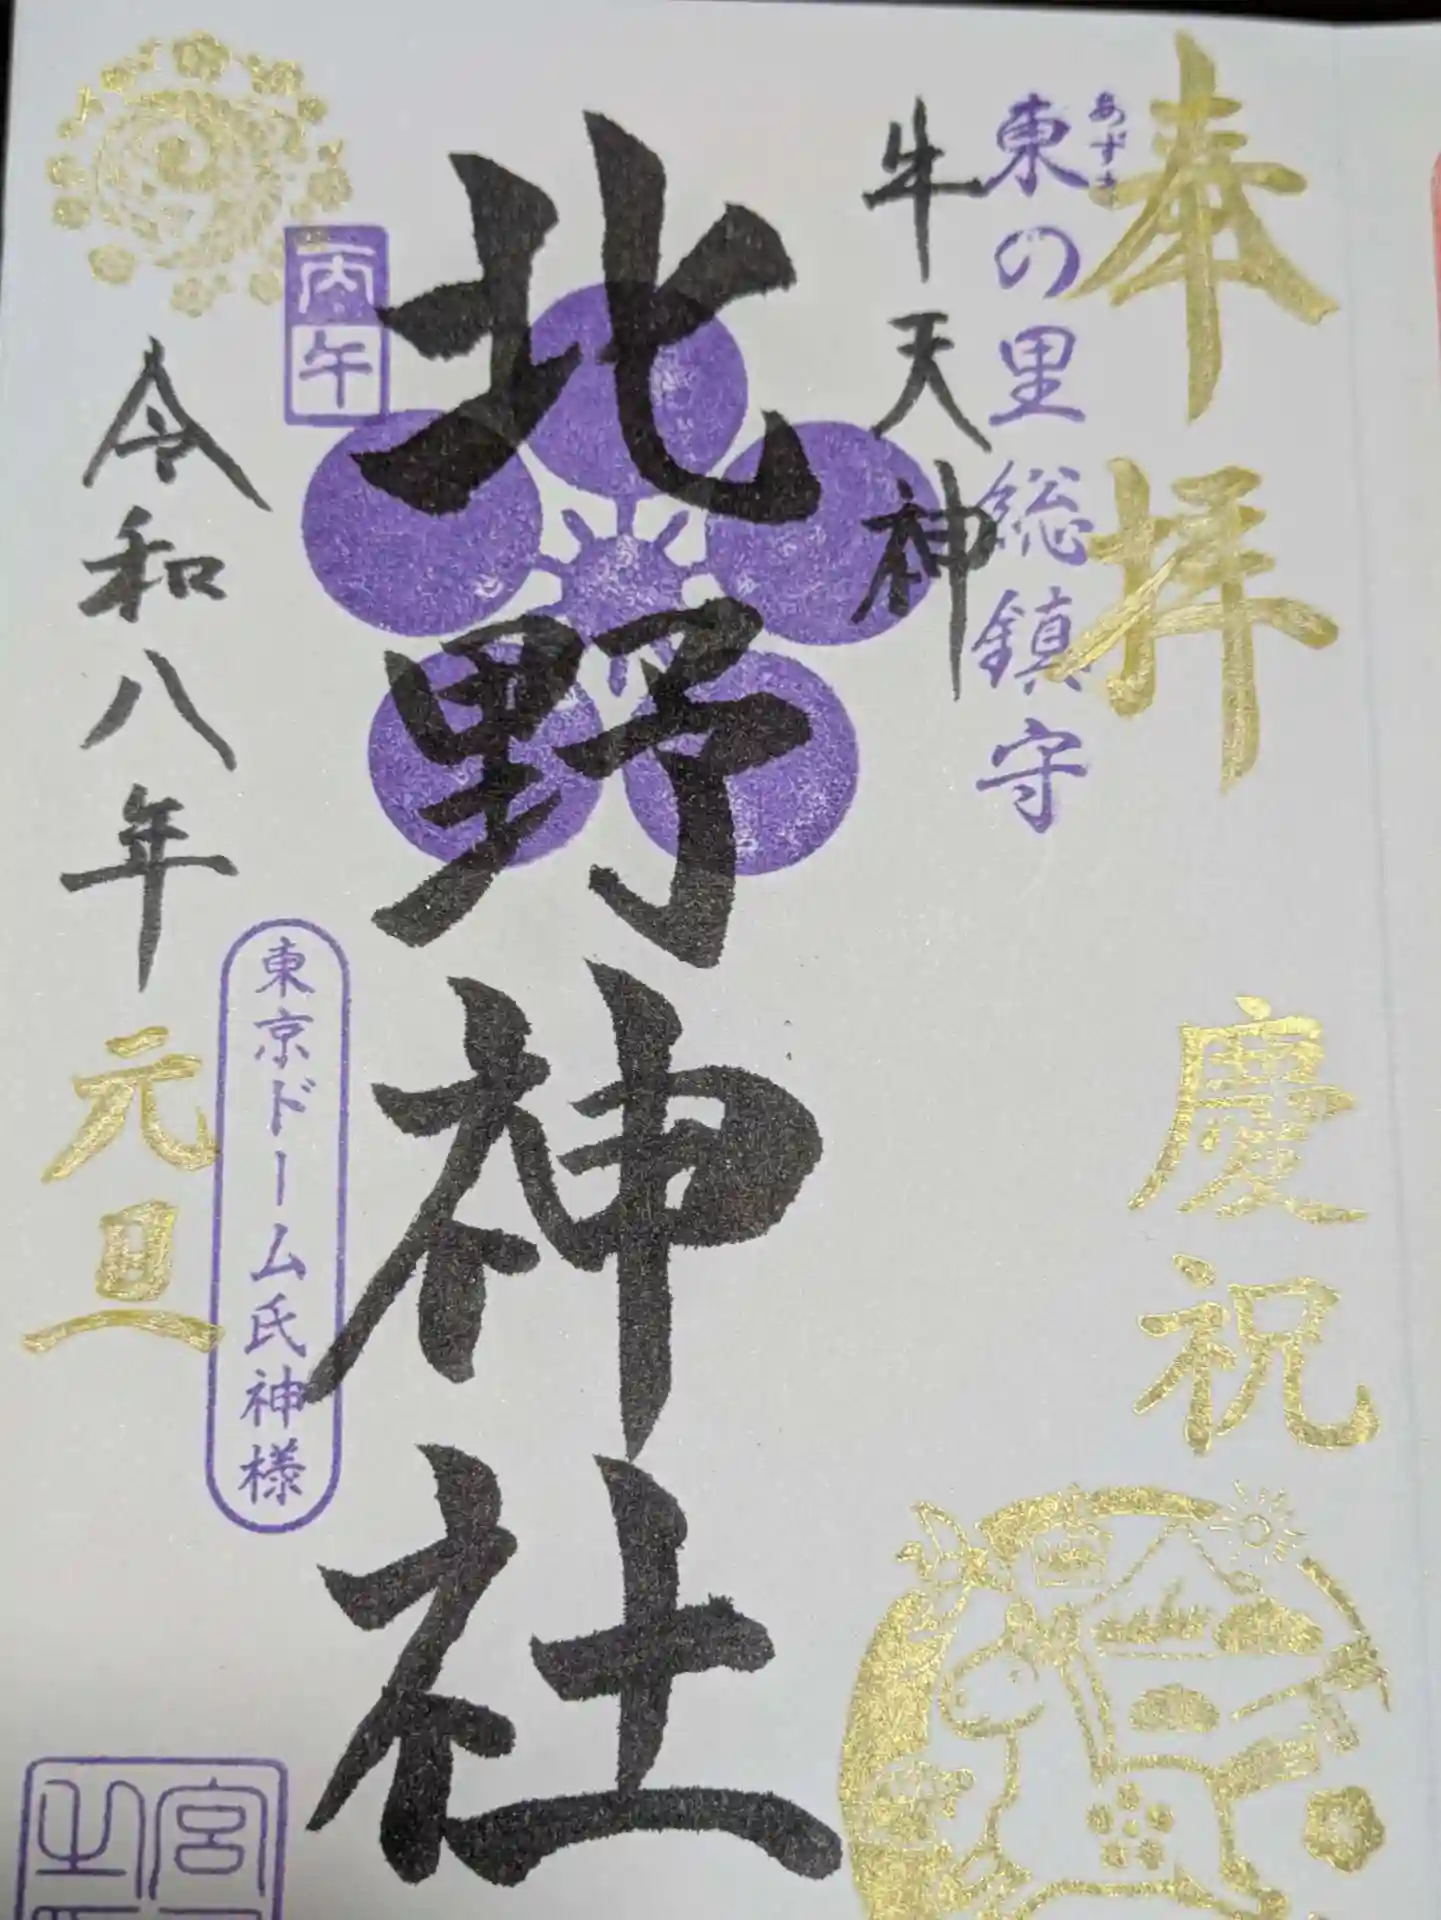 奉拝
慶祝
あずま
東の里総鎮守
牛天神
北野神社
丙午
東京ドーム氏神様
令和八年元旦
宮